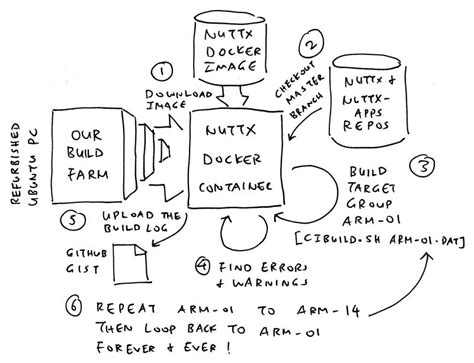 NUTTX
DOCKER
IMAGE
①
DOWNLOAD
IMAGE
②
CHECKOUT
MASTER
BRANCH
NUTTX &
NUTTX-
APPS
REPOS
REFURBISHED
UBUNTU PC
OUR
BUILD
FARM
NUTTX
DOCKER
CONTAINER
③
BUILD
TARGET
GROUP
ARM-01
[CIBUILD.SH ARM-01.DAT]
④ FIND ERRORS
& WARNINGS
⑤ UPLOAD THE
BUILD LOG
GITHUB
GIST
⑥ REPEAT ARM-01 TO ARM-14
THEN LOOP BACK TO ARM-01
FOREVER & EVER!